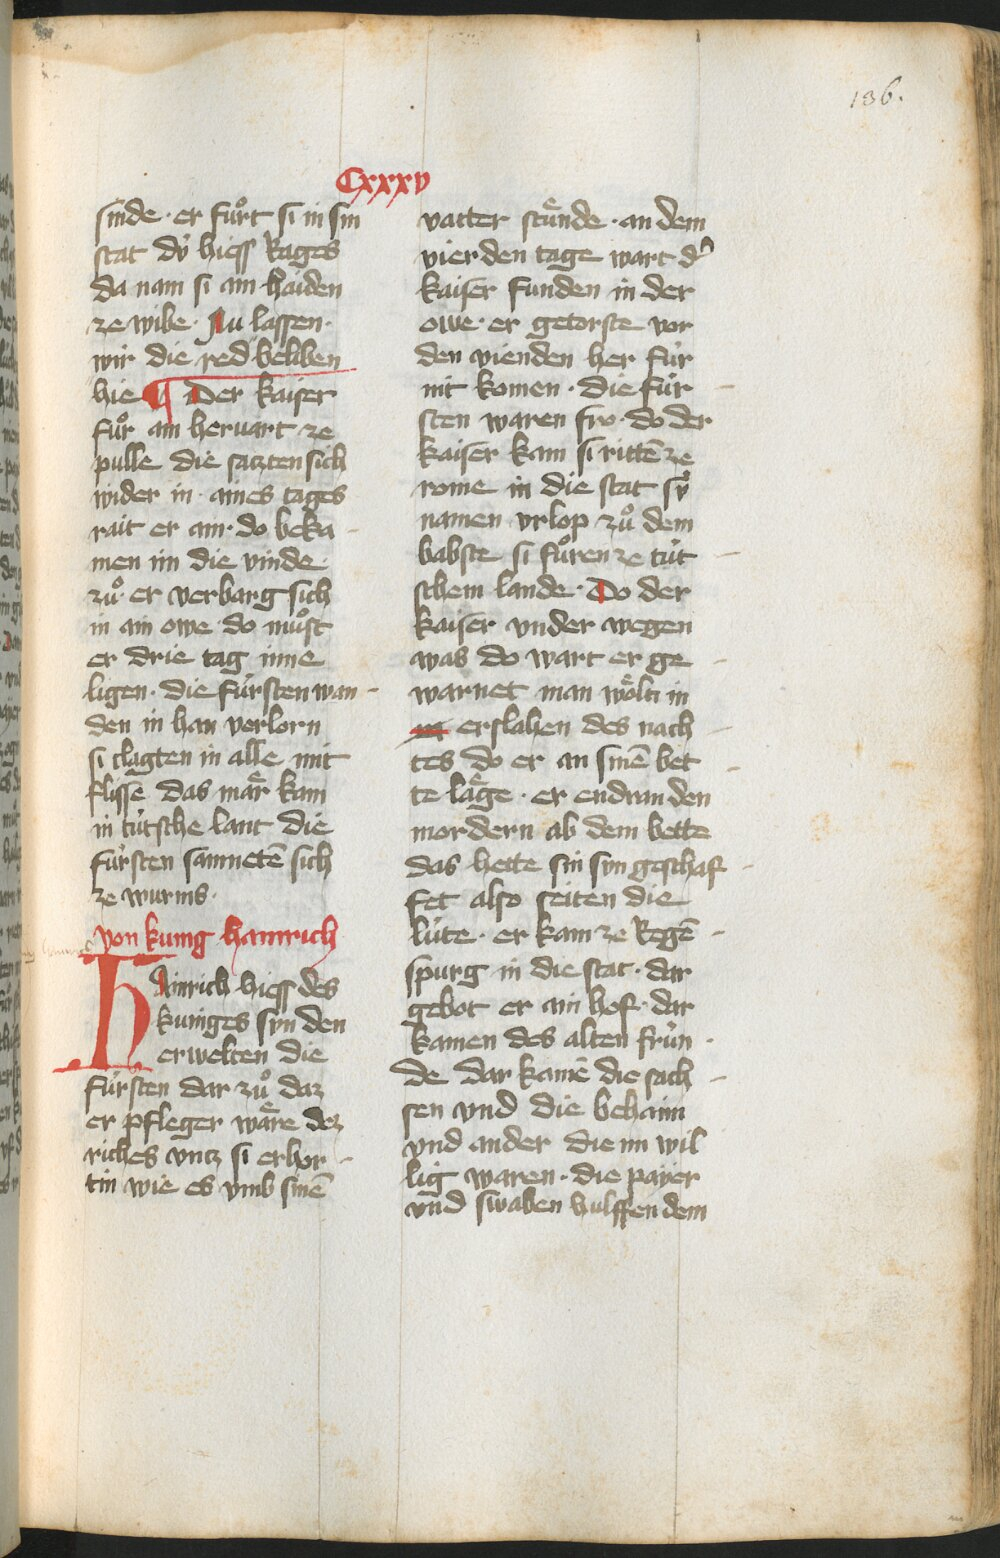 136.
Cxxxv
sinde · er fuͦrt si in sin
stat dv̍ hiess Rages
da nam si ain haiden
ze wibe · Nu lassen ·
wir die red beliben
hie ¶ Der kaiser
fuͦr ain heruart ze
pulle die saczten sich
wider in · aines tages
rait er ain · do beka
men im die vinde ·
zuͦ · er verbarg sich
in ain owe · do muͦst
er drie tag inne
ligen · die fúrsten wan
den in han verlorn
si clagten in alle mit
flisse das maͤr kam
in tútsche lant die
fúrsten samnetē sich
ze wurms ·
von kunig hainrich
Hainrich hiess des
kuniges syn den
erwelten die
fúrsten dar zuͦ daz
er pfleger waͤre dez
riches vntz si erhor
tin wie es vmb sinē
vatter stuͤnde · an dem
vierden tage wart d'
kaiser funden in der
owe · er getorste vor
den vienden her fúr
nit komen · die fúr
sten waren fro · do der
kaiser kam si rittē ze
rome in die stat sv̍
namen vrlop zuͦ dem
babste si fuͦren ze tút
schem lande · Do der
kaiser vnder wegen
was do wart er ge
warnet man woͤlti in
erslahen des nach
tes do er an sinē bet
te laͤge · er endran den
mordern ab dem bette
das hette sin syn geschaf
fet also seiten die
lúte · er kam ze Regē
spurg in die stat · dar
gebot er ain hof · dar
kamen des alten frún
de dar kamē die sach
sen vnd die behaim
vnd ander die im wil
lig waren · die payer
vnd swaben hulffen dem